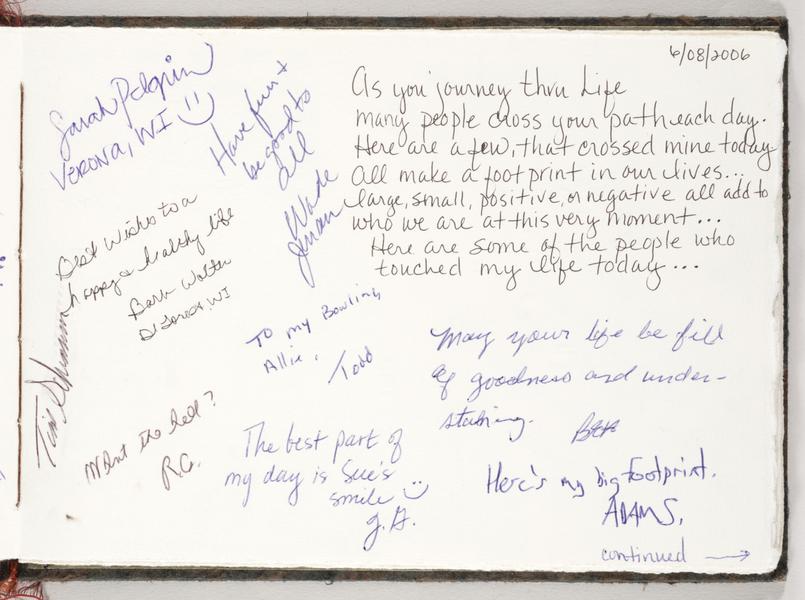 6/08/2006
As you journey thru Life
many people cross your path each day.
Here are a few, that crossed mine today
All make a footprint in our lives...
large, small, positive, or negative all add to
who we are at this very moment...
Here are some of the people who
touched my life today...
Sarah Pelgrin
VERONA, WI
Have fun +
be good to
all
Wade
Best Wishes to a
happy & healthy life
Barb Walter
WI
Tim
To my Bowling
Allie,
Todd
What the hell?
R.G.
The best part of
my day is Sue's
smile
J.A.
May your life be fill
of goodness and under-
staning.
Here's my big footprint.
ADAMS.
continued →